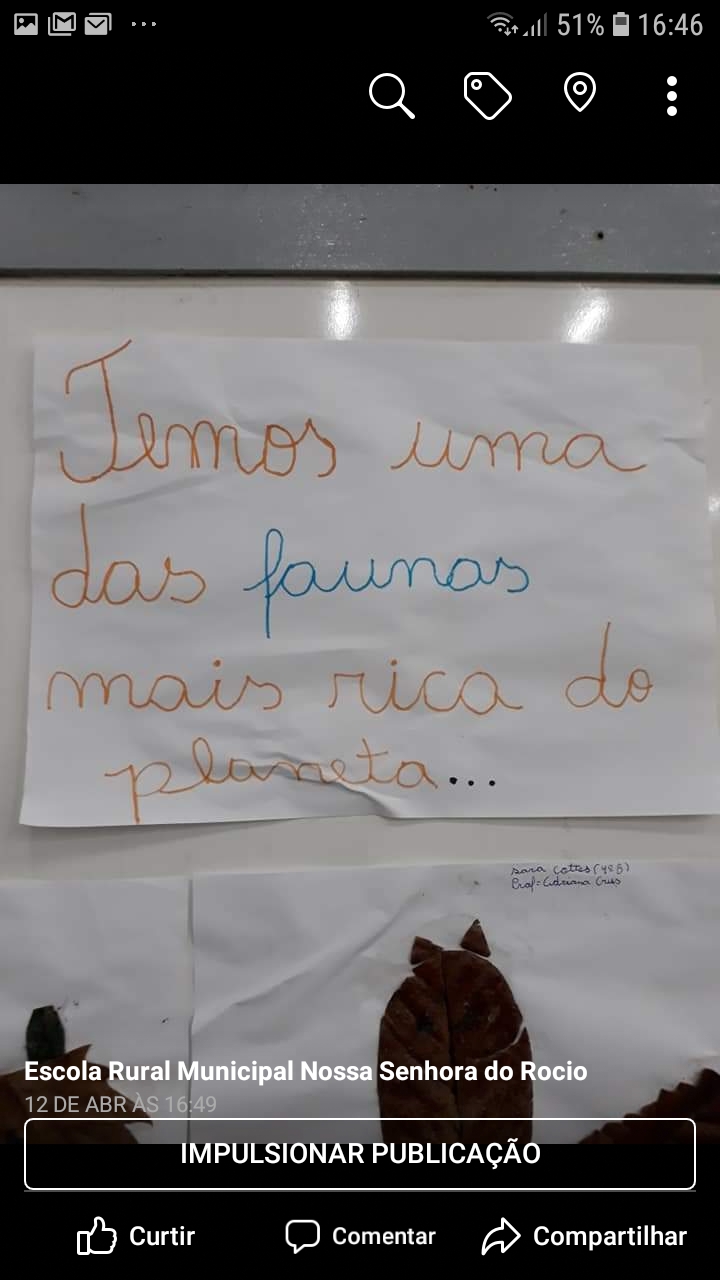 51% 16:46
Temos uma
das faunas
mais rica do
planeta...
Escola Rural Municipal Nossa Senhora do Rocio
12 DE ABR ÀS 16:49
IMPULSIONAR PUBLICAÇÃO
Curtir Comentar Compartilhar